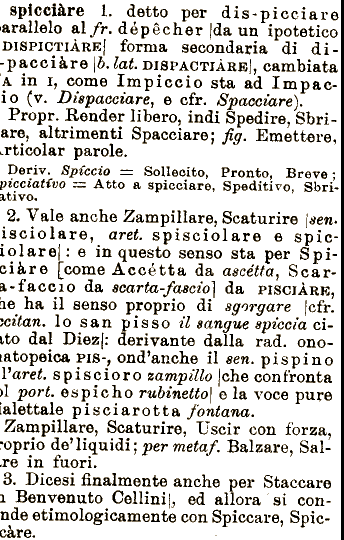 spicciàre 1. detto per dis-picciare
parallelo al fr. dépêcher [da un ipotetico
DISPICTIÀRE] forma secondaria di di-
-pacciàre [b. lat. DISPACTIÀRE], cambiata
A in I, come Impiccio sta ad Impac-
io (v. Dispacciare, e cfr. Spacciare).
Propr. Render libero, indi Spedire, Sbri-
are, altrimenti Spacciare; fig. Emettere,
Articolar parole.
Deriv. Spíccio = Sollecito, Pronto, Breve;
picciatívo = Atto a spicciare, Speditivo, Sbri-
ativo.
2. Vale anche Zampillare, Scaturire [sen.
isciolare, aret. spisciolare e spic-
iolare]: e in questo senso sta per Spi-
ciàre [come Accétta da ascétta, Scar-
a-faccio da scarta-fascio] da PISCIÀRE,
he ha il senso proprio di sgorgare [cfr.
ccitan. lo san pisso il sangue spiccia ci-
ato dal Diez]: derivante dalla rad. ono-
atopeica PIS-, ond'anche il sen. pispino
l'aret. spiscioro zampillo [che confronta
ol port. espicho rubinetto] e la voce pure
ialettale pisciarotta fontana.
Zampillare, Scaturire, Uscir con forza,
roprio de' liquidi; per metaf. Balzare, Sal-
re in fuori.
3. Dicesi finalmente anche per Staccare
n Benvenuto Cellini], ed allora si con-
nde etimologicamente con Spiccare, Spic-
càre.